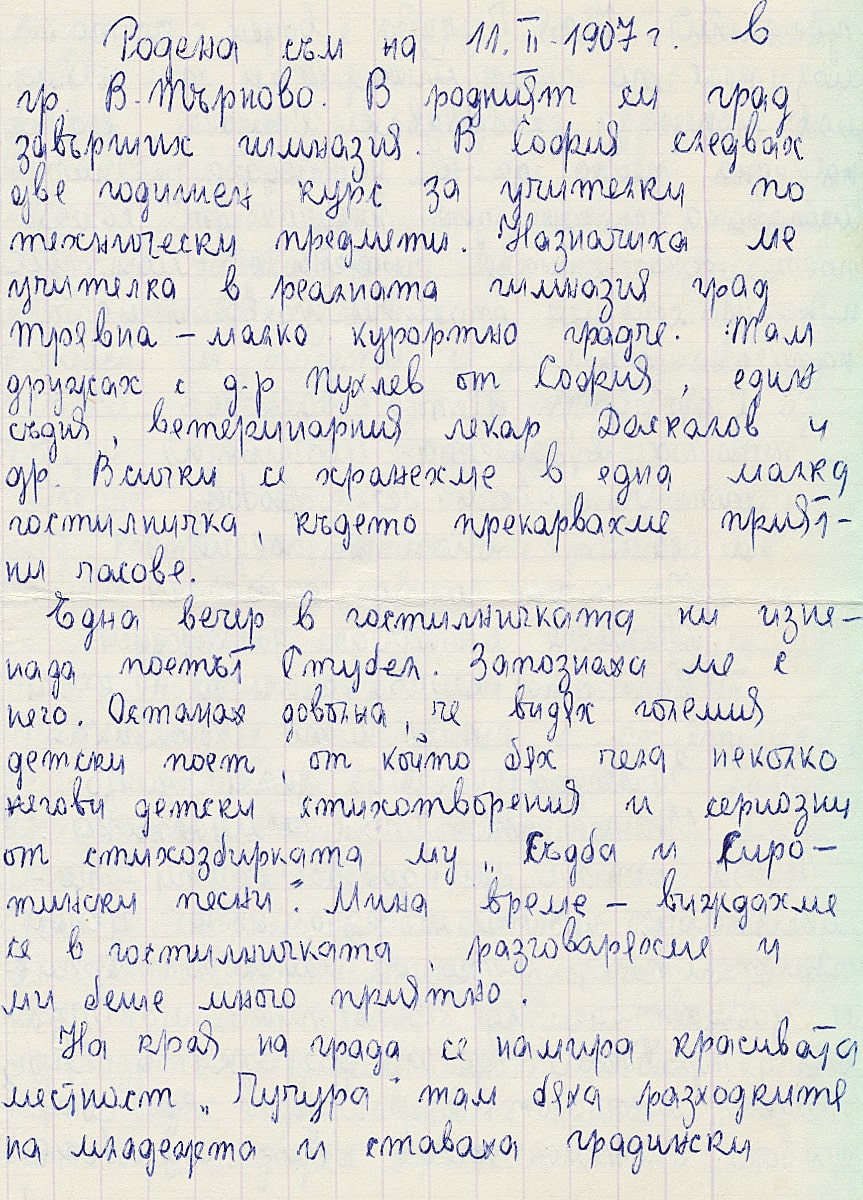 Родена съм на 11.II.1907 г. в
гр. В. Търново. В родният си град
завърших гимназия. В София следвах
две годишен курс за учителки по
технически предмети. Назначиха ме
учителка в реалната гимназия град
Трявна – малко курортно градче. Там
дружах с д-р Пухлев от София, един
съдия, ветеринарния лекар Даскалов и
др. Всички се хранехме в една малка
гостилничка, където прекарвахме прият-
ни часове.
Една вечер в гостилничката ни изне-
нада поетът Стубел. Запознаха ме с
него. Останах доволна, че видях големия
детски поет, от който бях чела неколко
негови детски стихотворения и сериозни
от стихозбирката му „Съдба и Сиро-
тински песни". Мина време – виждахме
се в гостилничката, разговаряхме и
ми беше много приятно.
На края на града се намира красивата
местност „Чучура" там бяха разходките
на младежта и ставаха градински